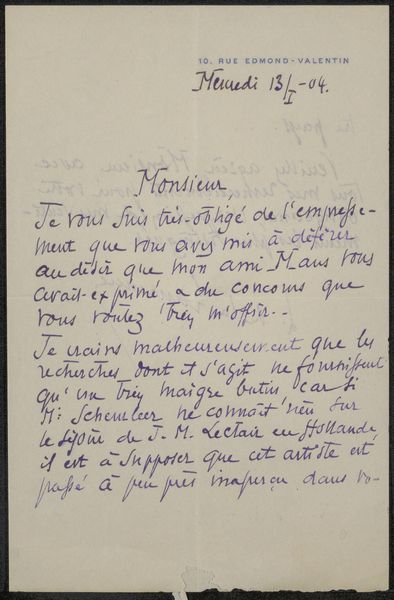 10, RUE EDMOND-VALENTIN
Mercredi 13/I-04.
Monsieur
Je vous suis très-obligé de l'empresse-
ment que vous avez mis à déférer
au désir que mon ami Maus vous
avait exprimé & du concours que
vous voulez bien m'offrir.
Je crains malheureusement que les
recherches dont il s'agit ne fournissent
qu'un bien maigre butin car si
Mr Scheurleer ne connaît rien sur
le séjour de J. M. Leclair en Hollande,
il est à supposer que cet artiste est
passé à peu près inaperçu dans vo-